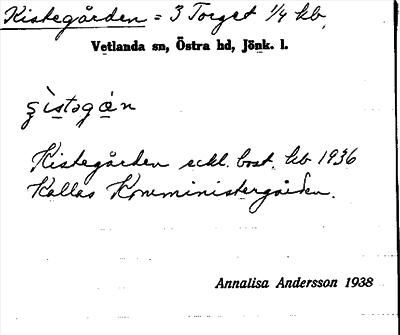 Kistegården = 3 Torget 1/4 kb.
Vetlanda sn, Östra hd, Jönk. l.
Kistegården eckl. bost. kb 1936
Kallas Komministergården.
Annalisa Andersson 1938